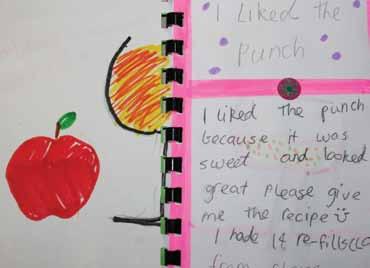 I Liked the
punch
I liked the punch
because it was
sweet and looked
great please give
me the recipe
I hade 14 re-fills
from